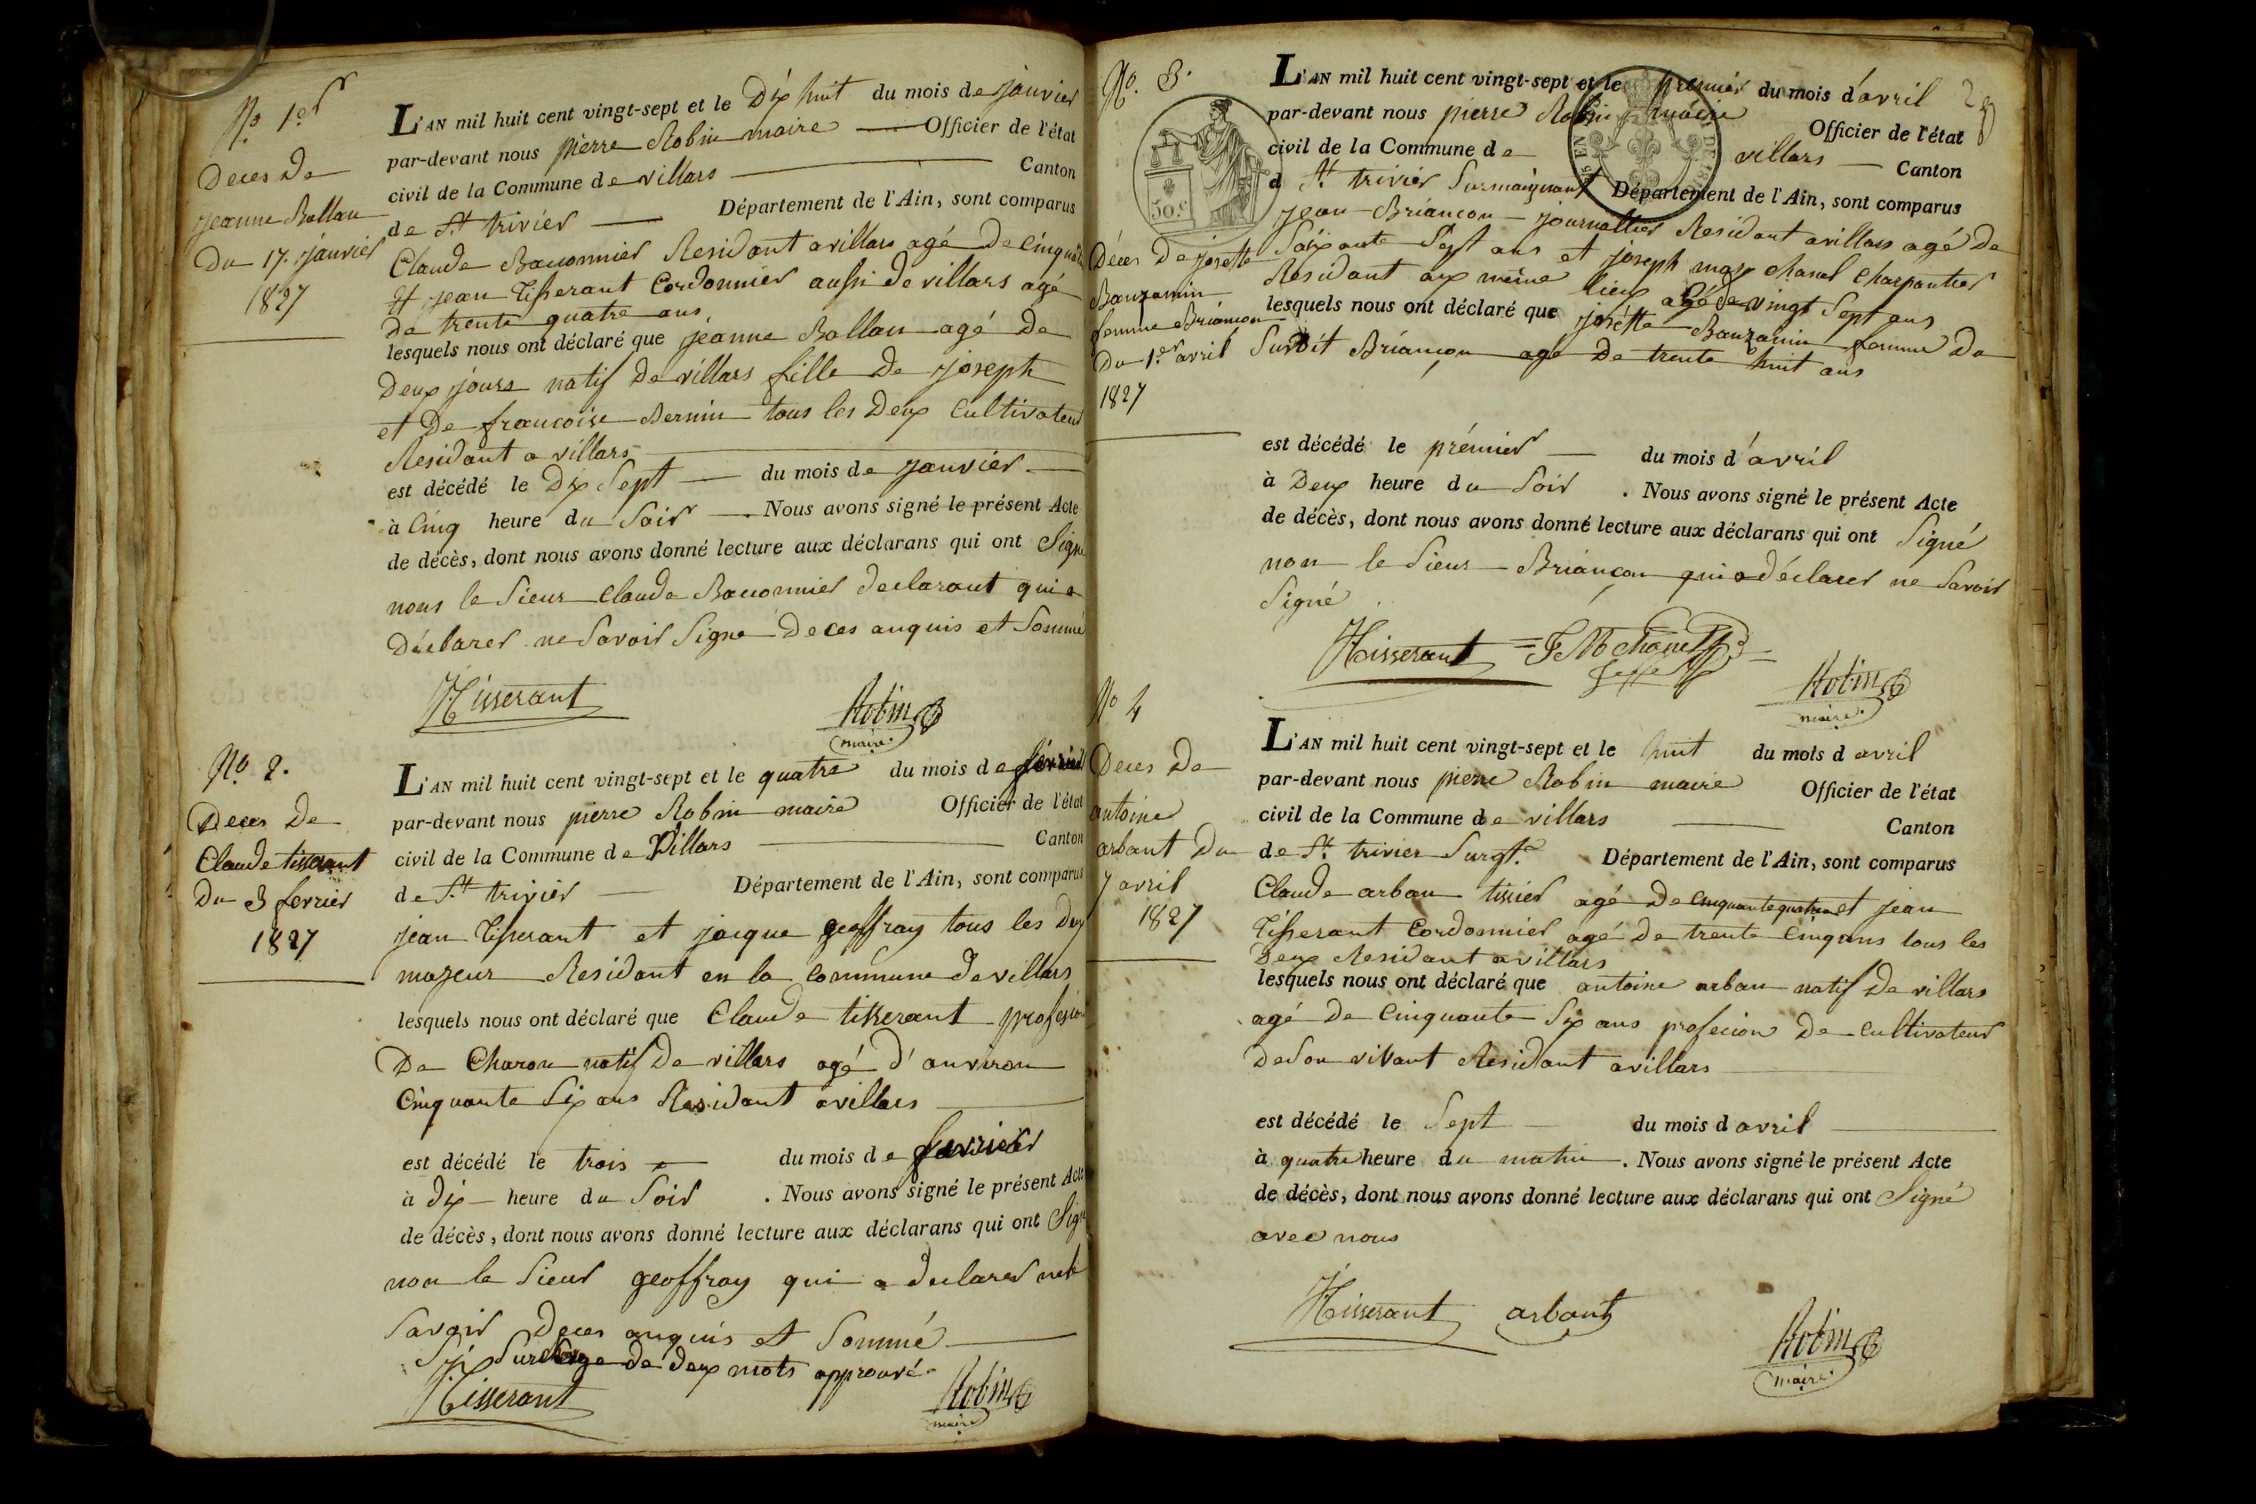 No 1er
Deces De
jeanne Ballan
Du 17. janvier
1827
L'AN mil huit cent vingt-sept et le Dix huit du mois de janvier
par-devant nous pierre Robin maire Officier de l'état
civil de la Commune de villars Canton
de St trivier Département de l'Ain, sont comparus
Claude Residant a villars agé De
Et jean Tisserant Cordonnier aussi De villars agé
De trente quatre ans
lesquels nous ont déclaré que jeanne Ballan agé De
Deux jours natif De villars fille De joseph
et De francoise Bernin tous les Deux Cultivateur
Residant a villars
est décédé le Dix Sept du mois de janvier
à Cinq heure du Soir . Nous avons signé le présent Acte
de décès, dont nous avons donné lecture aux déclarans qui ont Signé
nous le Sieur Claude declarant qui a
Déclarer ne Savoir Signé De ces anquis et Sommé
Tisserant
Robin
maire
No 2.
Deces De
Claude tisserant
Du 3 fevrier
1827
L'AN mil huit cent vingt-sept et le quatre du mois de février
par-devant nous pierre Robin maire Officier de l'état
civil de la Commune de Villars Canton
de St trivier Département de l'Ain, sont comparus
jean Tisserant et jacque geoffray tous les Dux
majeur Residant en la Commune De villars
lesquels nous ont déclaré que Claude tisserant
De Charon natif De villars agé D'anviron
Cinquante Six ans Residant a villars
est décédé le trois du mois de fevrier
à Dix heure du Soir . Nous avons signé le présent Acte
de décès, dont nous avons donné lecture aux déclarans qui ont Signé
non le Sieur geoffray qui a declarer
Savoir De ces anquis et Sommé
Surcharge de deux mots approuvé
Tisserant
Robin
maire
No. 3.
50.c
Déces De josette
Banzamin
femme Briançon
Du 1er avril
1827
L'AN mil huit cent vingt-sept et le premier du mois d'avril
par-devant nous pierre Robin maire Officier de l'état
civil de la Commune de villars Canton
d St trivier Surmaignant Département de l'Ain, sont comparus
jean Briancon journallier Residant a villars agé De
Soixante Sept ans et joseph marx Charpantier
Residant aux meme lieux agé de vingt Sept ans
lesquels nous ont déclaré que josétte Banzamin femme Du
Surdit Briançon agé De trente huit ans
est décédé le prémier du mois d'avril
à Deux heure du Soir . Nous avons signé le présent Acte
de décès, dont nous avons donné lecture aux déclarans qui ont Signé
non le Sieur Briançon qui a déclarer ne Savoir
Signé
Tisserant
Robin
maire
No 4
Deces De
antoine
arbant Du
7 avril
1827
L'AN mil huit cent vingt-sept et le huit du mois d avril
par-devant nous pierre Robin maire Officier de l'état
civil de la Commune de villars Canton
de St trivier Surgt. Département de l'Ain, sont comparus
Claude arban tissier agé De cinquante quatre et jean
Tisserant Cordonnier agé De trente Cinq ans tous les
Deux Residant a villars
lesquels nous ont déclaré que antoine arban natif De villars
agé De Cinquante Six ans profecion De Cultivateur
De Son vivant Residant a villars
est décédé le Sept du mois d avril
à quatre heure du matin . Nous avons signé le présent Acte
de décès, dont nous avons donné lecture aux déclarans qui ont Signé
avec nous
Tisserant arbant
Robin
maire